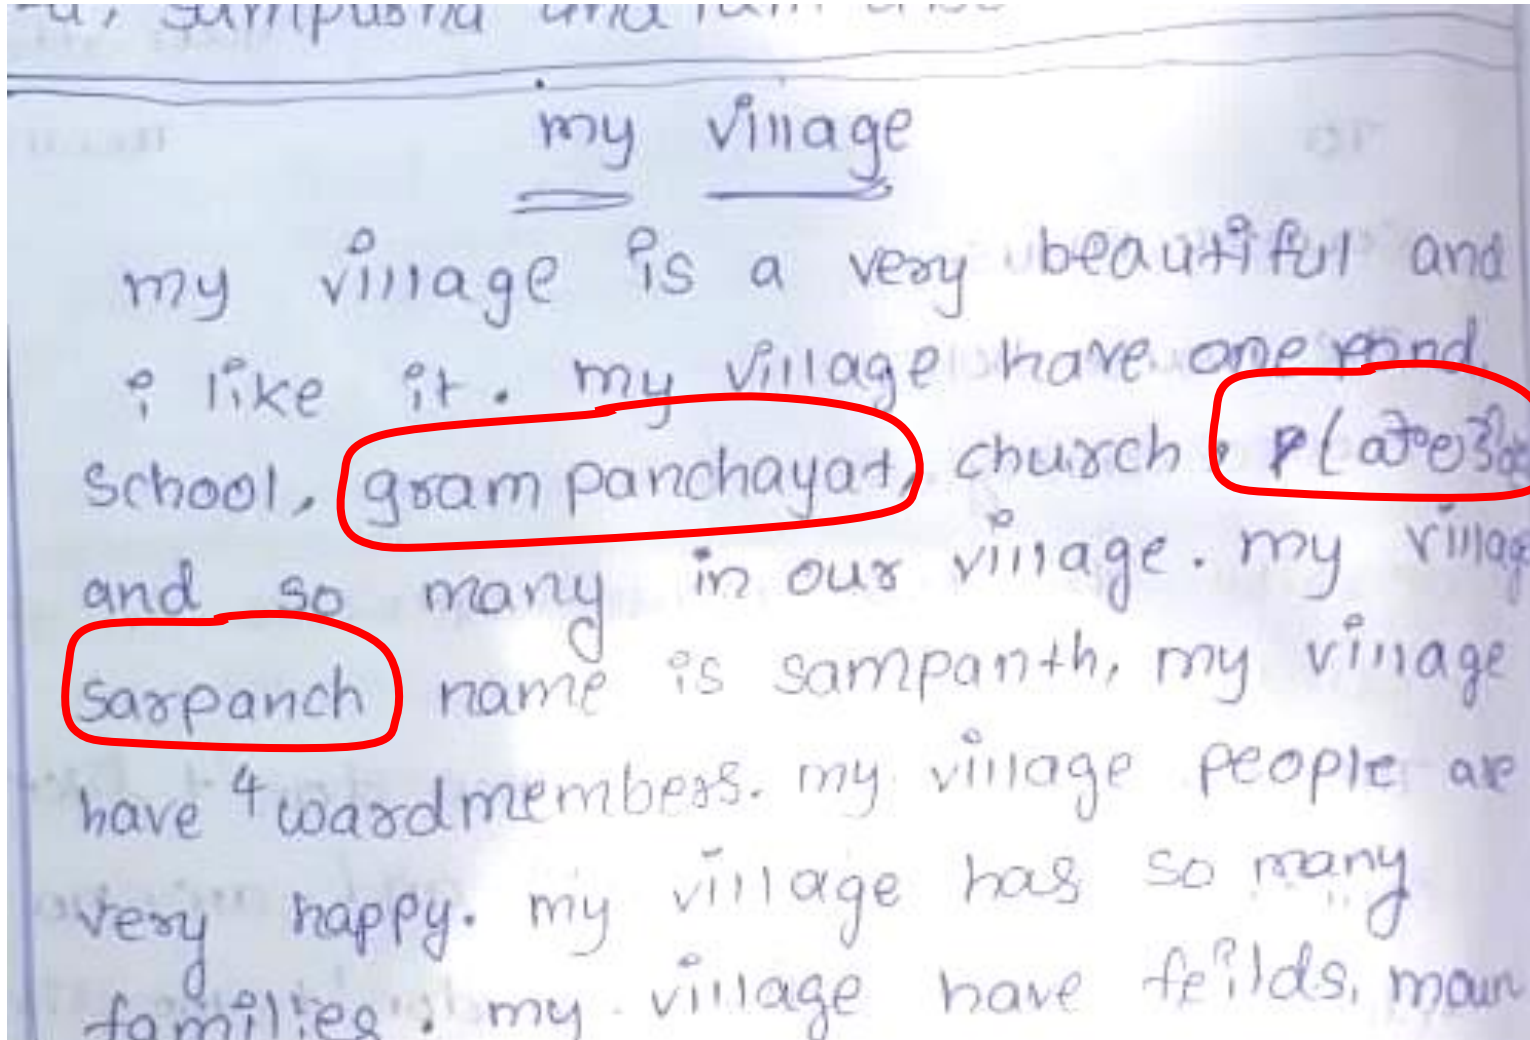 sampusna and
my village
my village is a very beautiful and
i like it. my village have one pond,
School, gram panchayat, church,
and so many in our village. my village
sarpanch name is sampanth, my village
have 4 ward members. my village people are
very happy. my village has so many
families. my village have feilds, moun